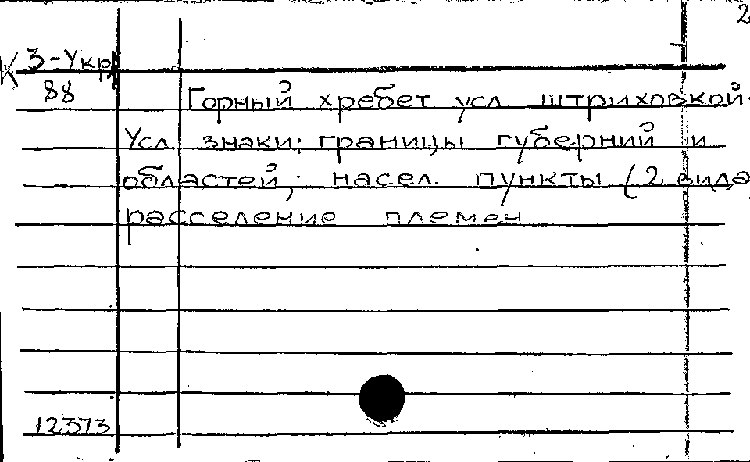 2
К 3-Укр
88
Горный хребет усл штриховкой.
Усл. знаки: границы губерний и
областей, насел. пункты (2 вида)
расселение племен
12373